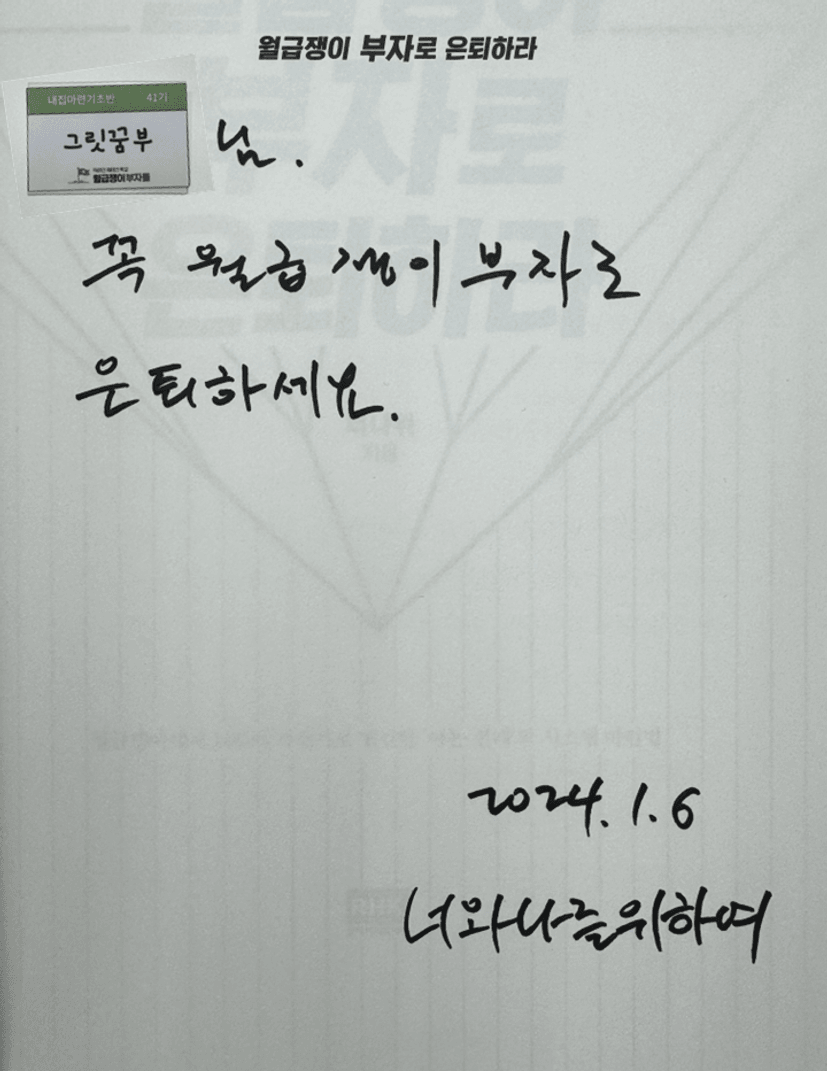 월급쟁이 부자로 은퇴하라
내집마련기초반 41기
그릿꿈부 님.
월급쟁이부자들
꼭 월급쟁이 부자로
은퇴하세요.
2024. 1. 6
너와나를위하여